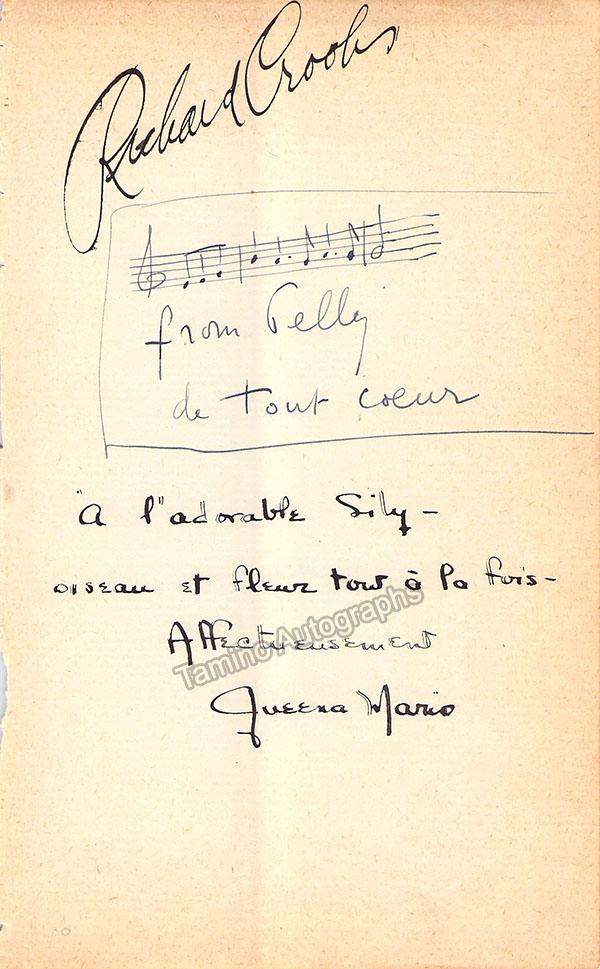 Richard Crooks
from Pelly
de tout coeur
"A l"adorable Sily -
oiseau et fleur tout à la fois -
Affectueusement
Tamino Autographs
Queena Mario